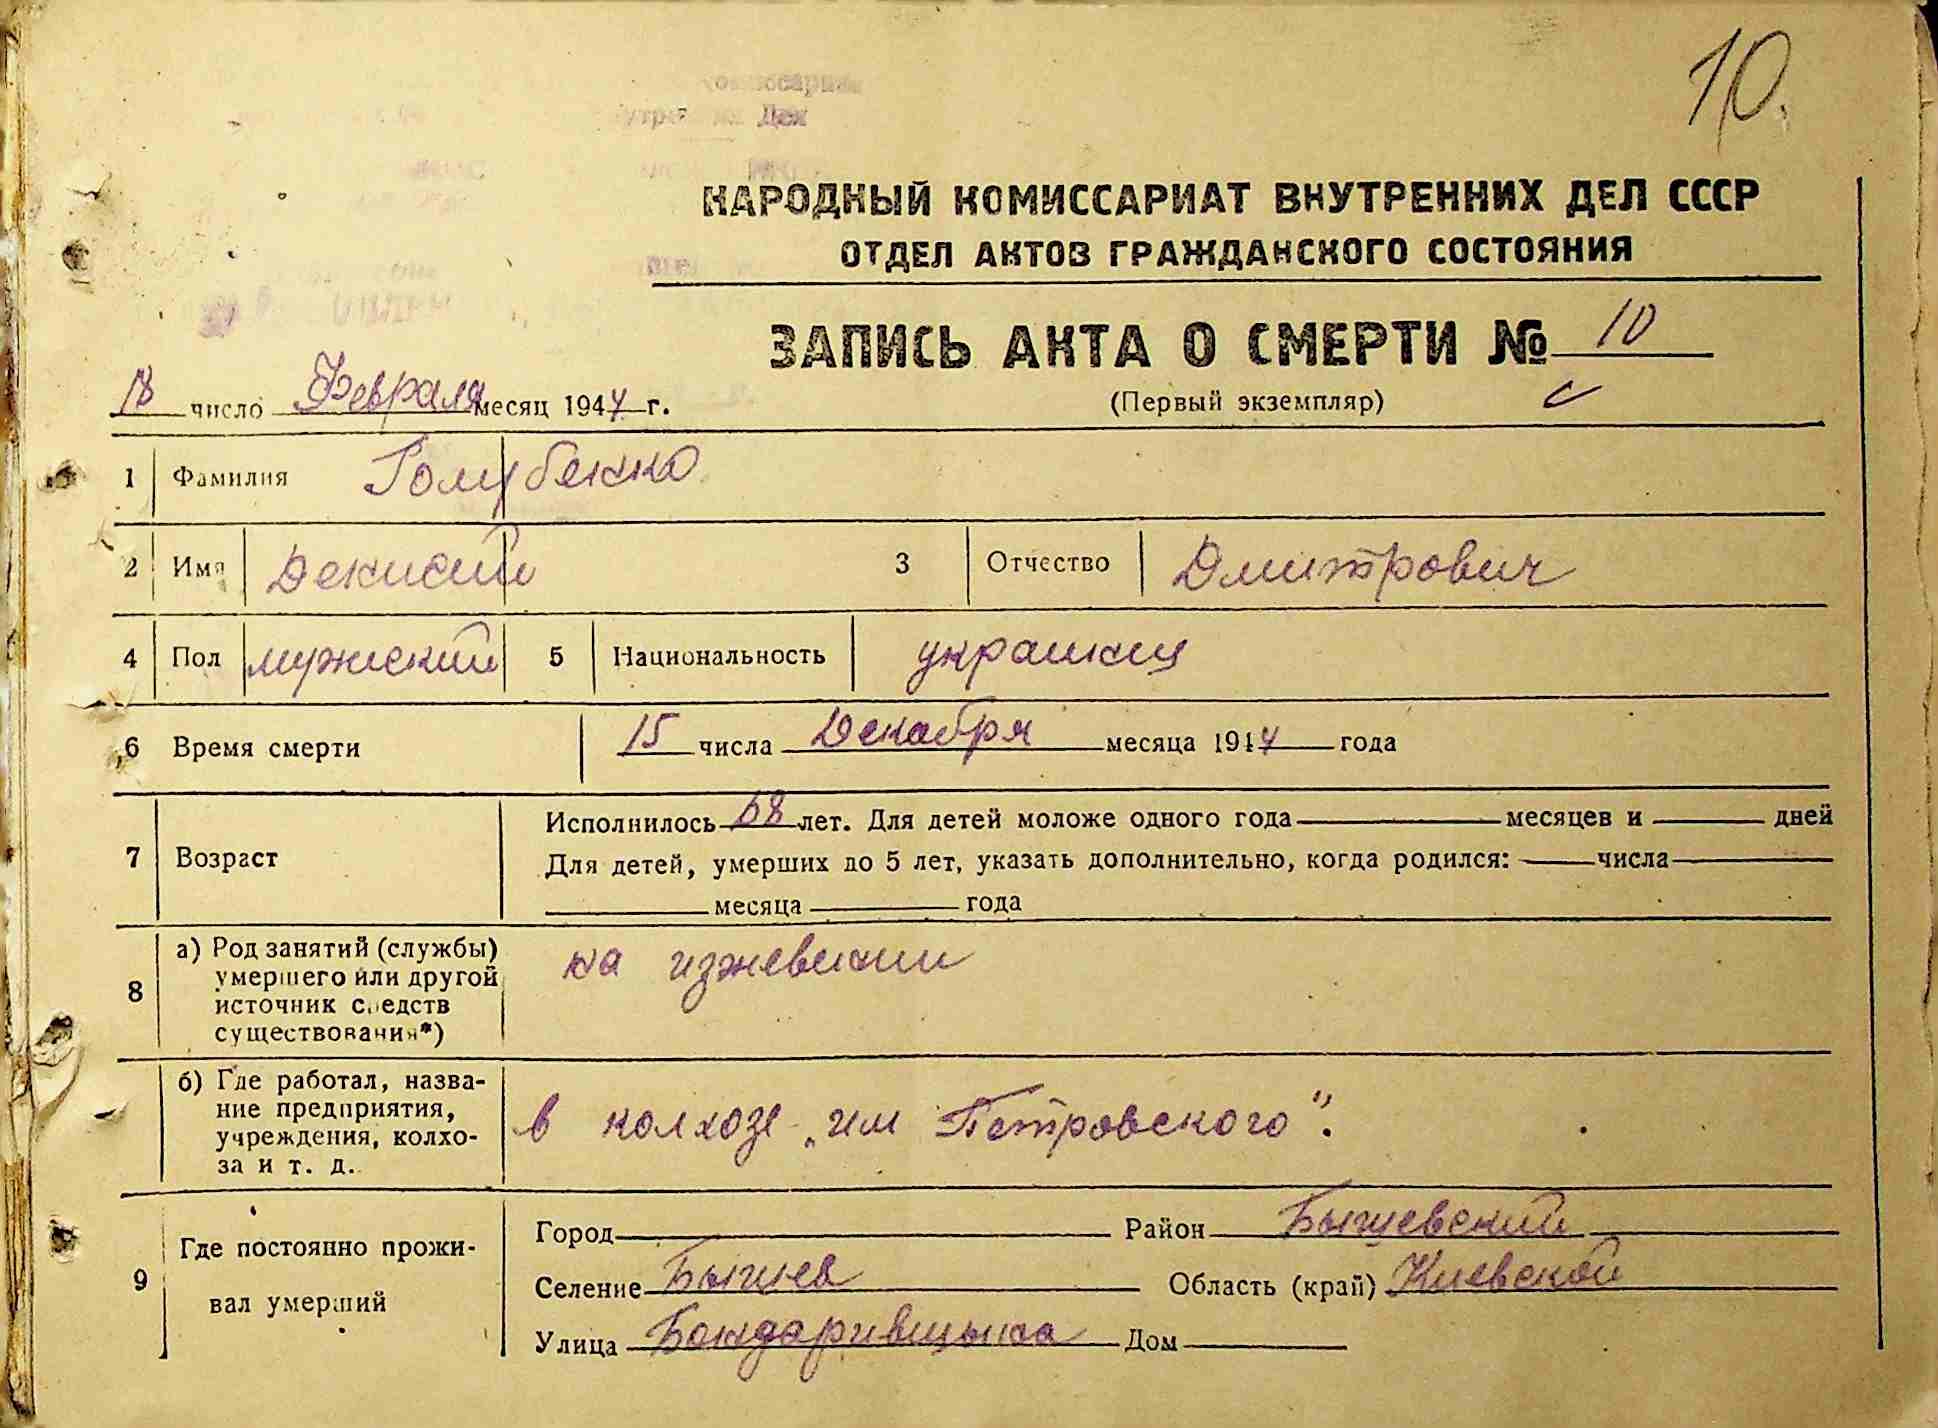 10.
НАРОДНЫЙ КОМИССАРИАТ ВНУТРЕННИХ ДЕЛ СССР
ОТДЕЛ АКТОВ ГРАЖДАНСКОГО СОСТОЯНИЯ
ЗАПИСЬ АКТА О СМЕРТИ № 10
18 число Февраля месяц 1944 г.
(Первый экземпляр)
1 Фамилия Голубенко
2 Имя Денисий 3 Отчество Дмитрович
4 Пол мужский 5 Национальность украинец
6 Время смерти 15 числа Декабря месяца 1944 года
7 Возраст
Исполнилось 68 лет. Для детей моложе одного года месяцев и дней
Для детей, умерших до 5 лет, указать дополнительно, когда родился: числа
месяца года
8 а) Род занятий (службы)
умершего или другой
источник средств
существования*)
на изжевении
б) Где работал, назва-
ние предприятия,
учреждения, колхо-
за и т. д.
в колхозе „им Петровского".
9 Где постоянно прожи-
вал умерший
Город Район Бышевский
Селение Бышев Область (край) Киевской
Улица Бондарившына Дом